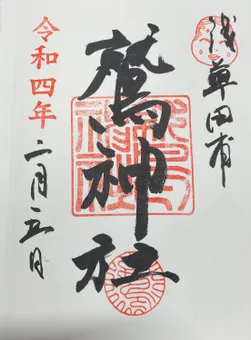 浅草田甫
鷲神社
令和四年
二月五日